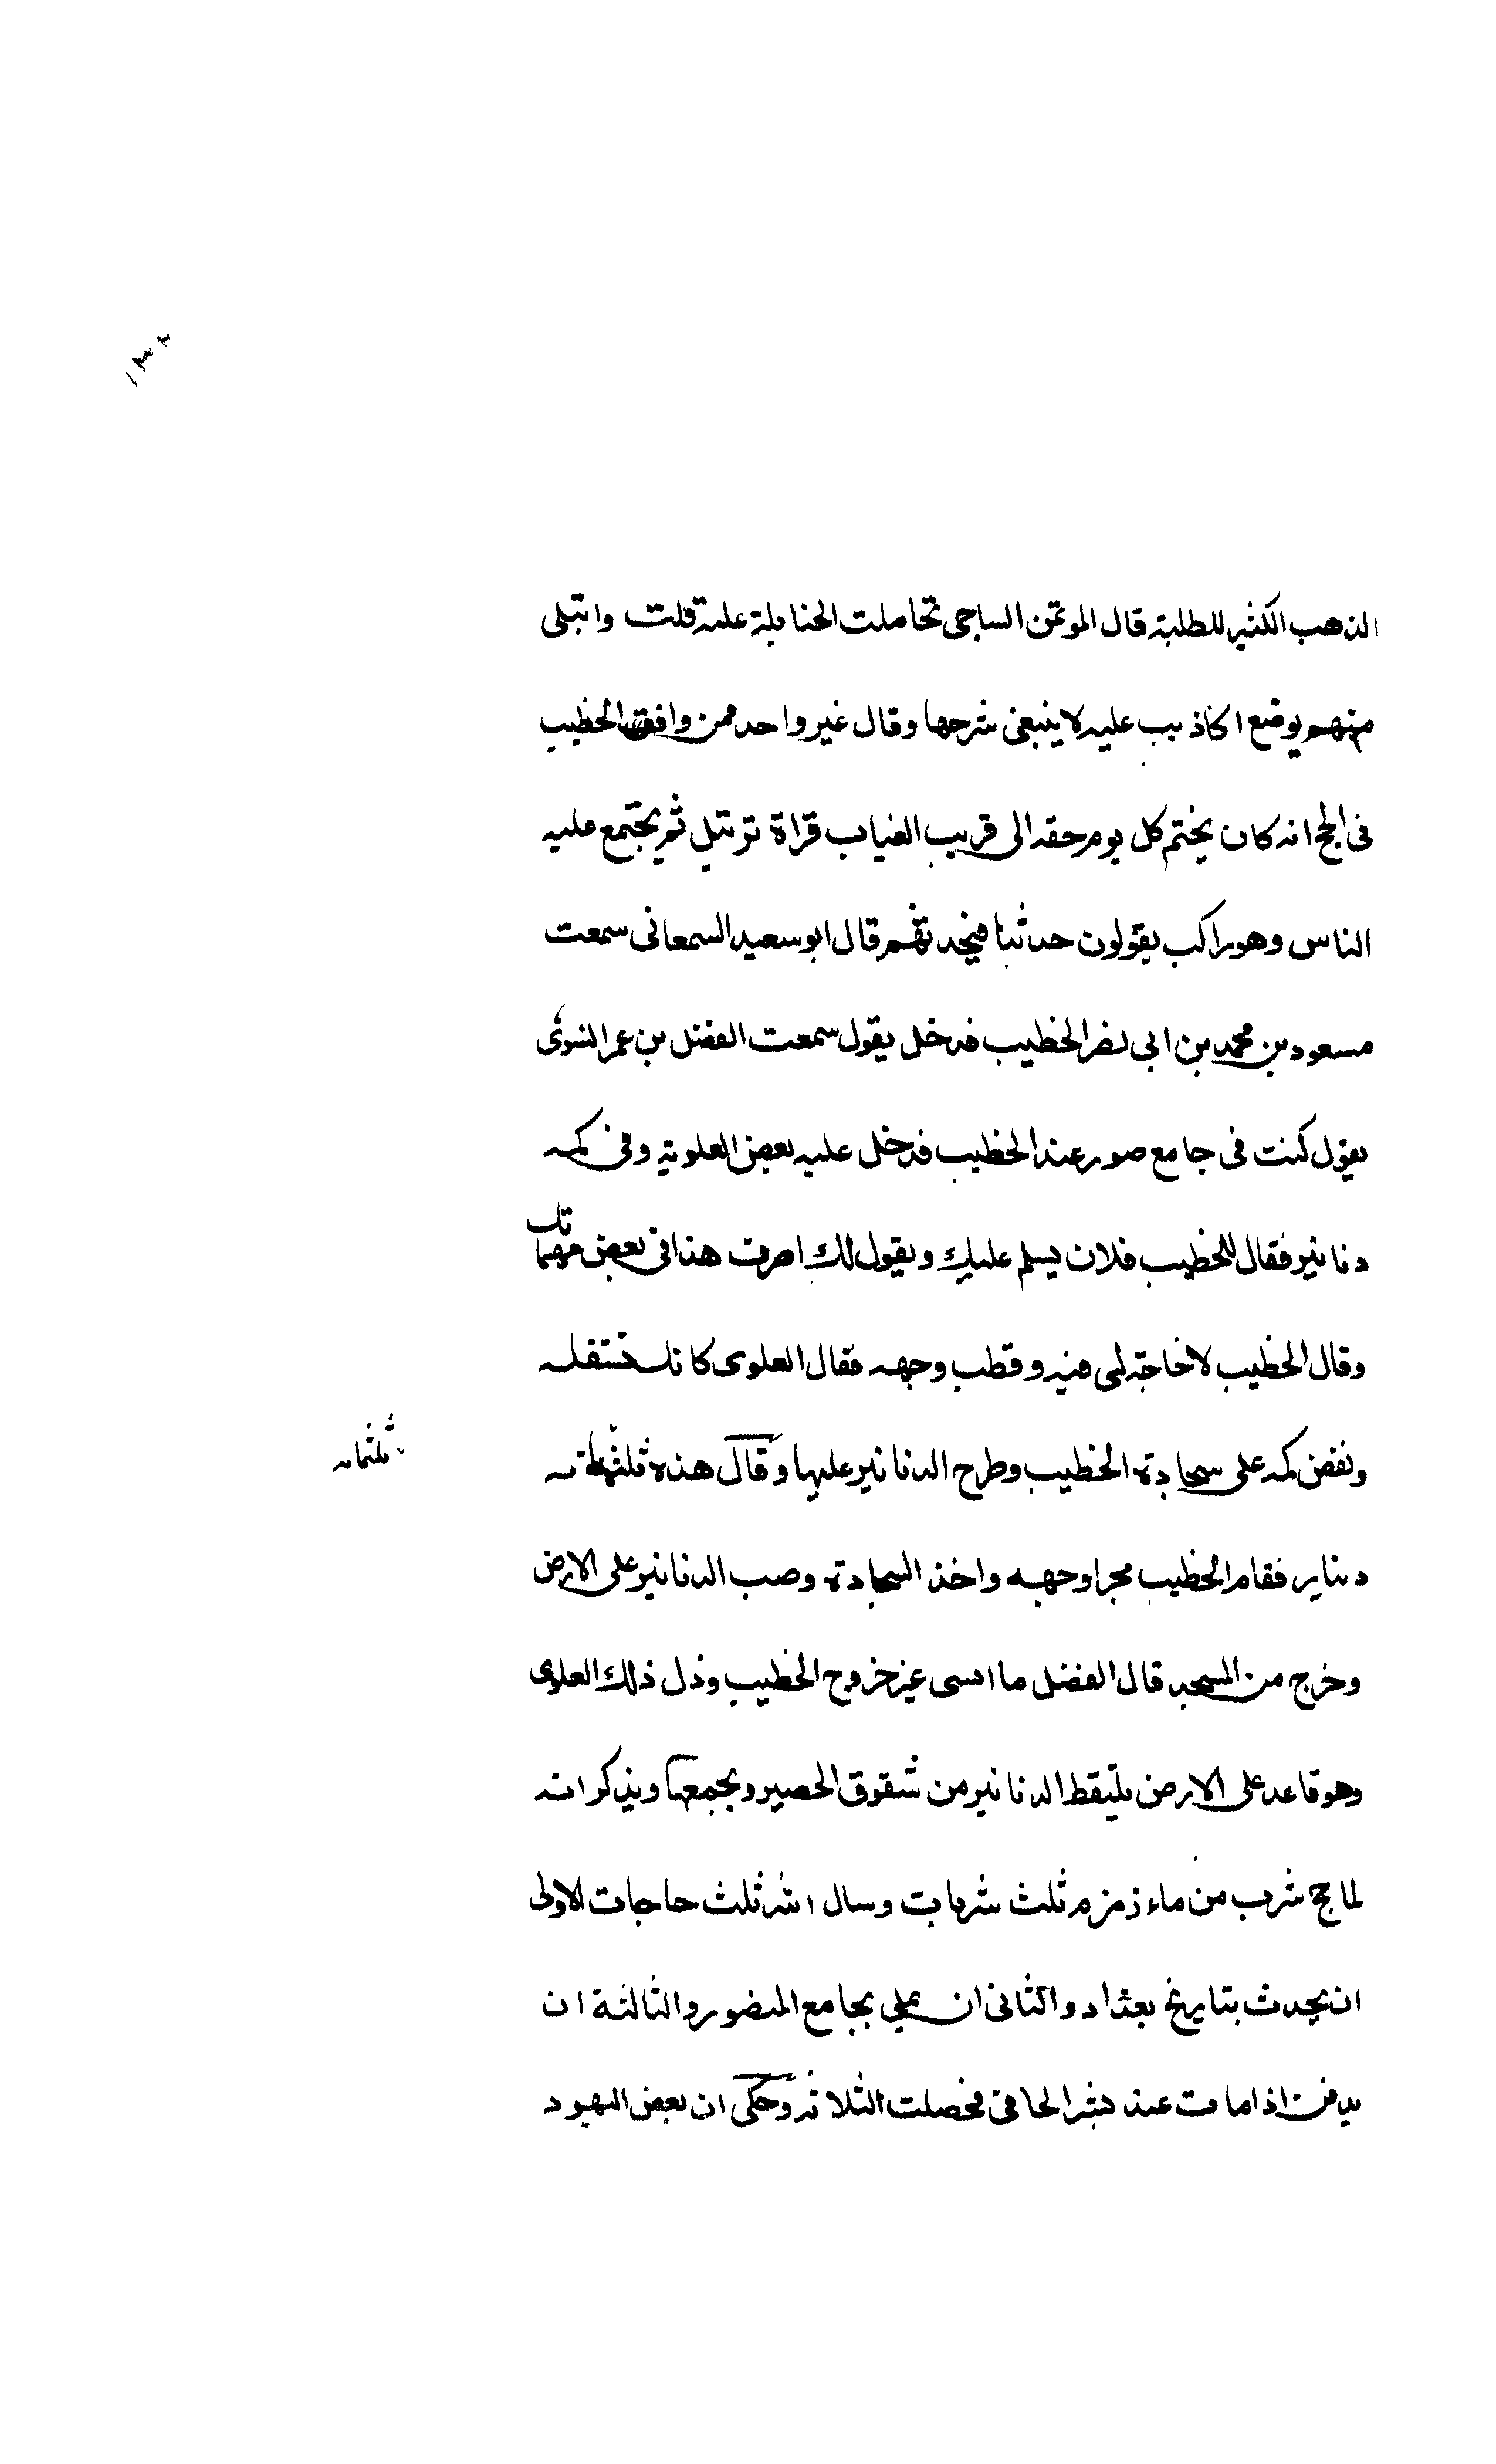 ١٣٢
الذهب الكثير للطلبة قال الموتمن الساجى تحاملت الحنابلة علىه قلت وابتلى
منهم بوضع اكاذيب عليه لا ينبغى شرحها وقال غير واحد ممن وافق الخطيب
فى الحج انه كان يختم كل يوم حقه الى قريب الغياب قراة ترتيل ثم يجتمع عليه
الناس وهو راكب يقولون حدثنا فيحدثهم قال ابو سعيد السمعانى سمعت
مسعود بن محمد بن ابى نصر الخطيب فدخل يقول سمعت الفضل بن عمر النسوى
يقول كنت فى جامع صور عند الخطيب فدخل عليه بعض العلوية وفى كمه
دنانير فقال للخطيب فلان يسلم عليك ويقول لك اصرف هذا فى بعض مهماتك
وقال الخطيب لا حاجة لى فيه وقطب وجهه فقال العلوى كانك تستقله
ونفض كمه على سجادة الخطيب وطرح الدنانير عليها وقال هذه ثلثماية
ثلثمايه
دينار فقام الخطيب محمرا وجهه واخذ السجادة وصب الدنانير على الارض
وخرج من المسجد قال الفضل ما انسى عز خروج الخطيب وذل ذلك العلوى
وهو قاعد على الارض يلتقط الدنانير من شقوق الحصير ويجمعها ويذكر انه
لما حج شرب من ماء زمزم ثلث شربات وسال الله ثلث حاجات الاولى
ان يحدث بتاريخ بغداد والثانى ان يملي بجامع المنصور والثالثة ان
يدفن اذا مات عند بشر الحافى فحصلت الثلاثة وحكى ان بعض اليهود